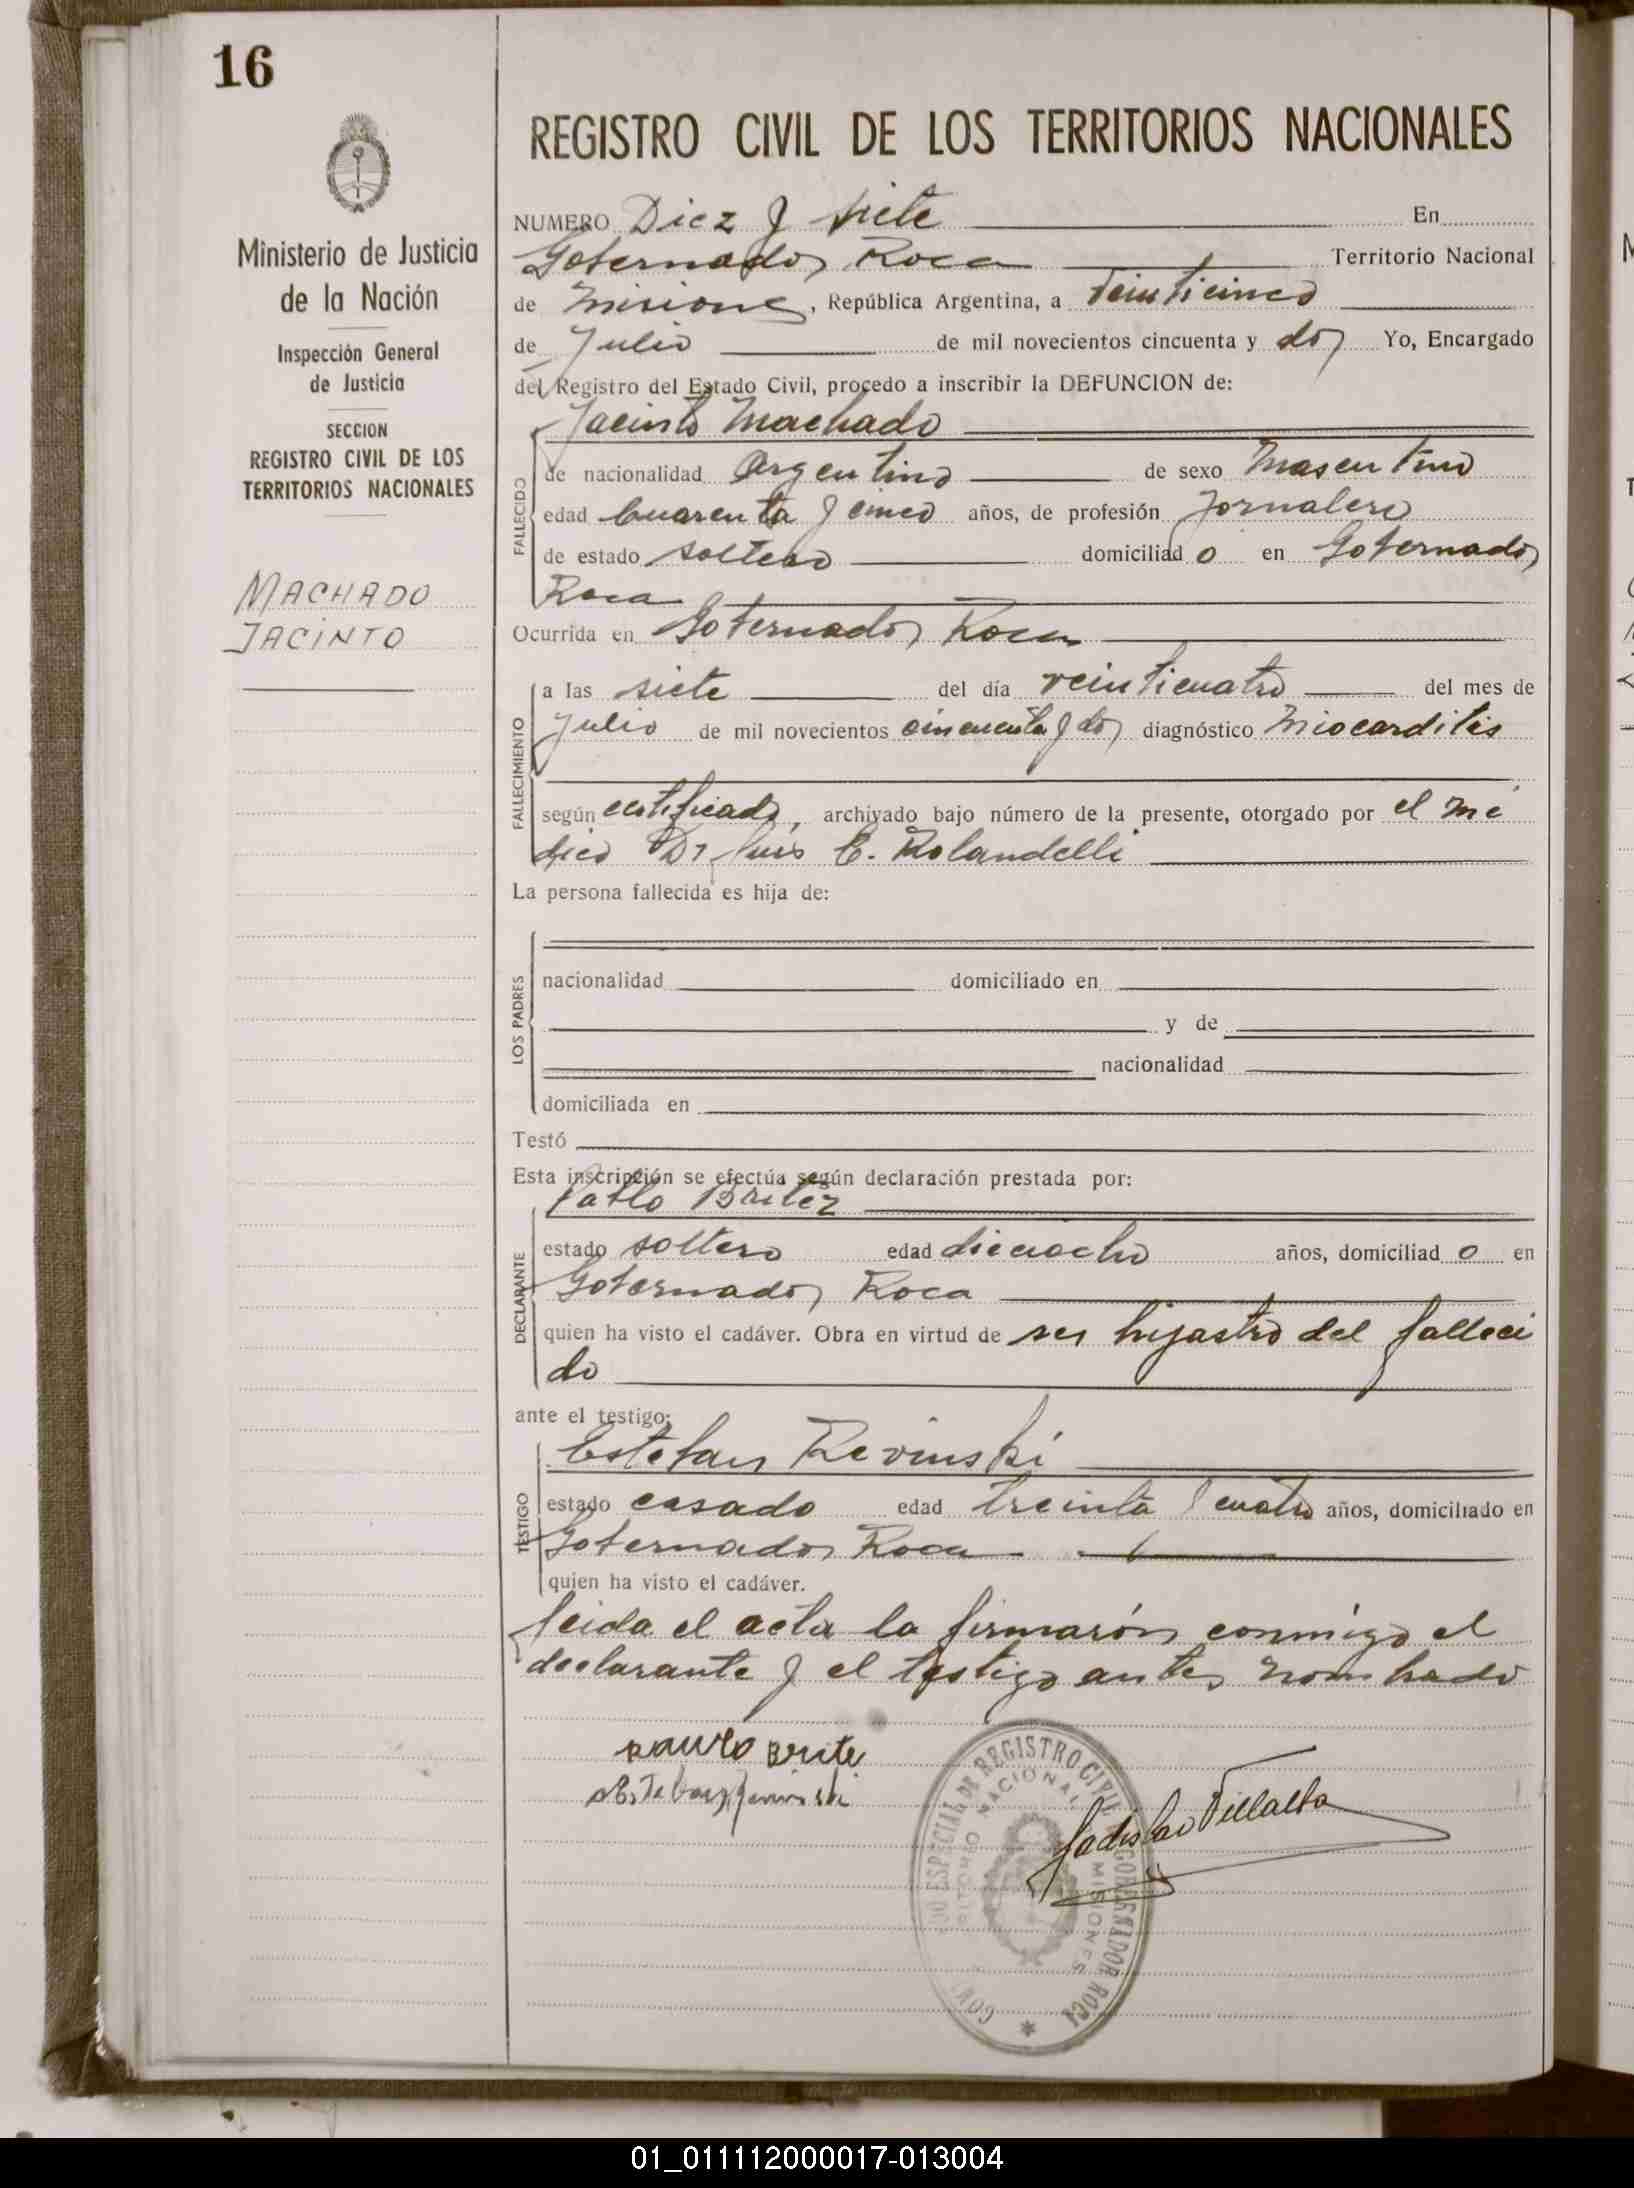 16
REGISTRO CIVIL DE LOS TERRITORIOS NACIONALES
Ministerio de Justicia
de la Nación
Inspección General
de Justicia
SECCION
REGISTRO CIVIL DE LOS
TERRITORIOS NACIONALES
MACHADO
JACINTO
NUMERO Diez y siete En
Gobernador Roca Territorio Nacional
de Misiones, República Argentina, a veinticinco
de Julio de mil novecientos cincuenta y dos Yo, Encargado
del Registro del Estado Civil, procedo a inscribir la DEFUNCION de:
Jacinto Machado
FALLECIDO
de nacionalidad Argentino de sexo Masculino
edad Cuarenta y cinco años, de profesión Jornalero
de estado soltero domiciliado en Gobernador
Roca
Ocurrida en Gobernador Roca
FALLECIMIENTO
a las siete del día veinticuatro del mes de
Julio de mil novecientos cincuenta y dos diagnóstico Miocarditis
según certificado, archivado bajo número de la presente, otorgado por el mé
dico Dr Luis E. Rolandelli
La persona fallecida es hija de:
LOS PADRES
nacionalidad domiciliado en
y de
nacionalidad
domiciliada en
Testó
Esta inscripción se efectúa según declaración prestada por:
Pablo Britez
DECLARANTE
estado soltero edad dieciocho años, domiciliado en
Gobernador Roca
quien ha visto el cadáver. Obra en virtud de ser hijastro del falleci
do
ante el testigo:
Esteban Revinski
TESTIGO
estado casado edad treinta y cuatro años, domiciliado en
Gobernador Roca
quien ha visto el cadáver.
leida el acta la firmarón conmigo el
declarante y el testigo antes nombrado
Brite
Ladislao Villalba
ESPECIAL DE REGISTRO CIVIL GOBERNADOR ROCA
NACIONAL
MISIONES
01_011112000017-013004